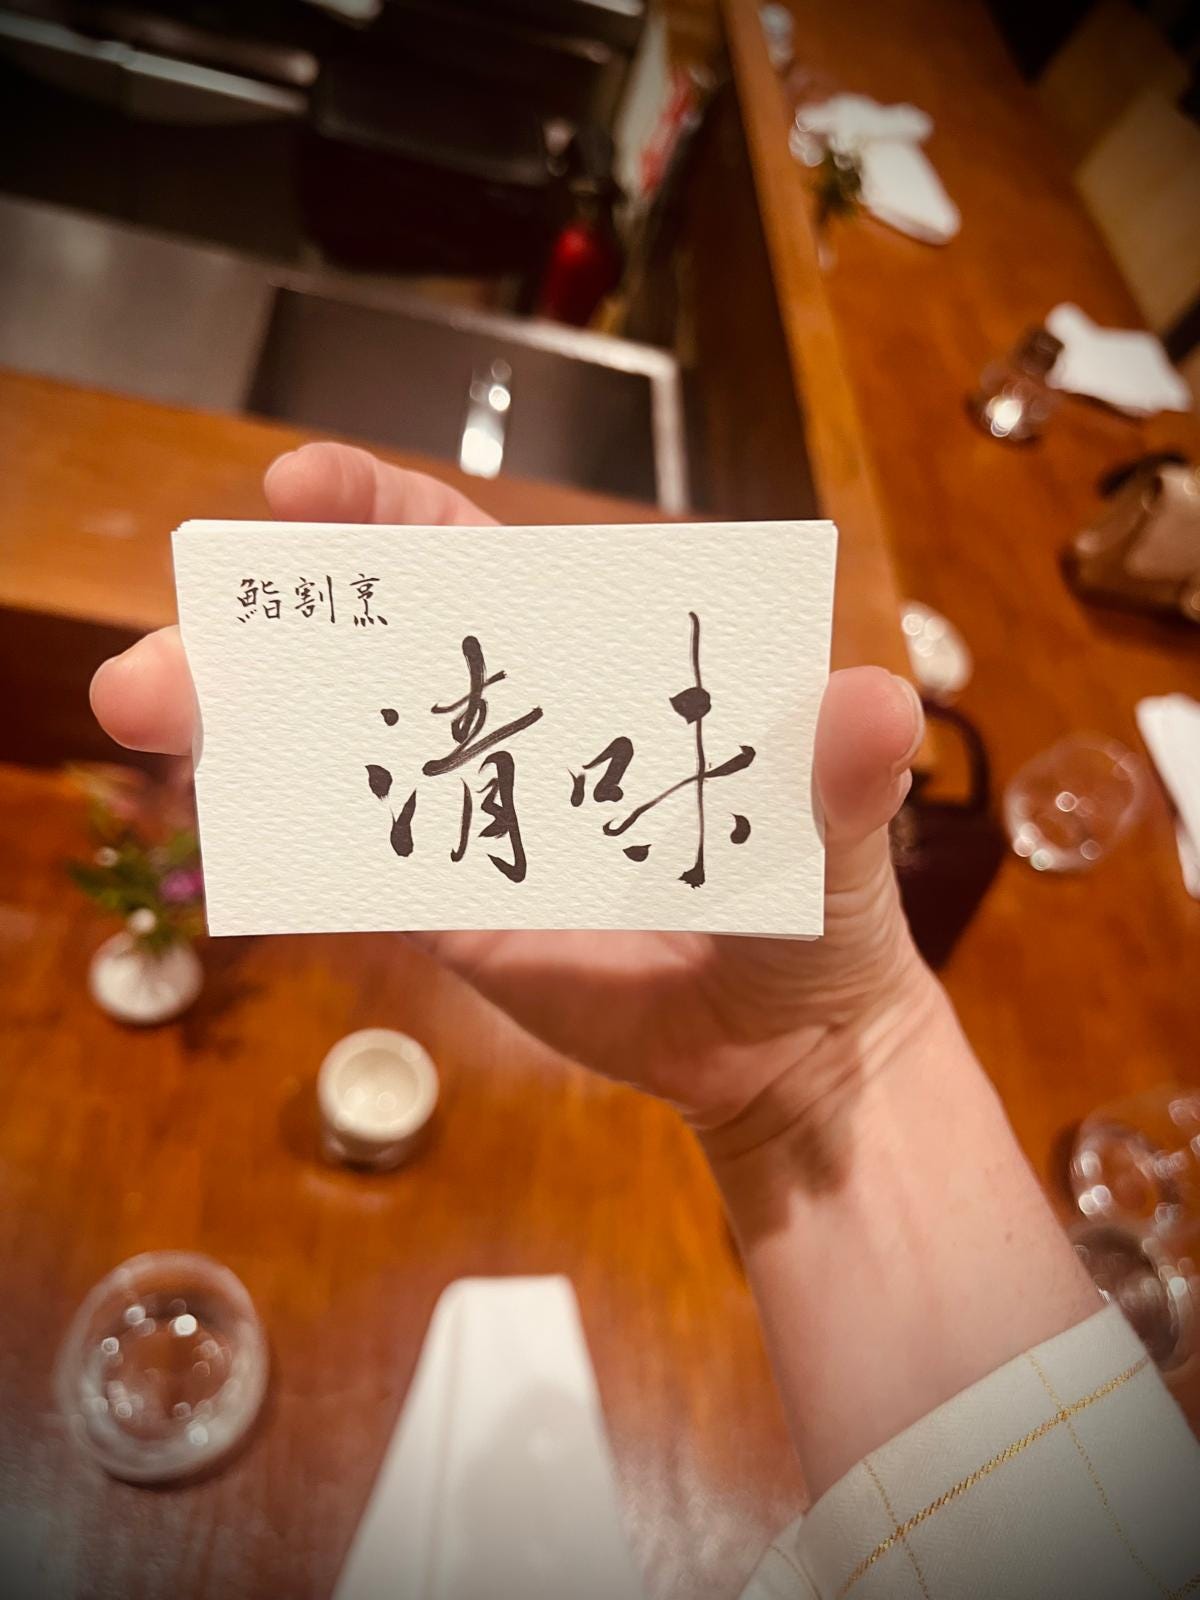 鮨割烹
清味